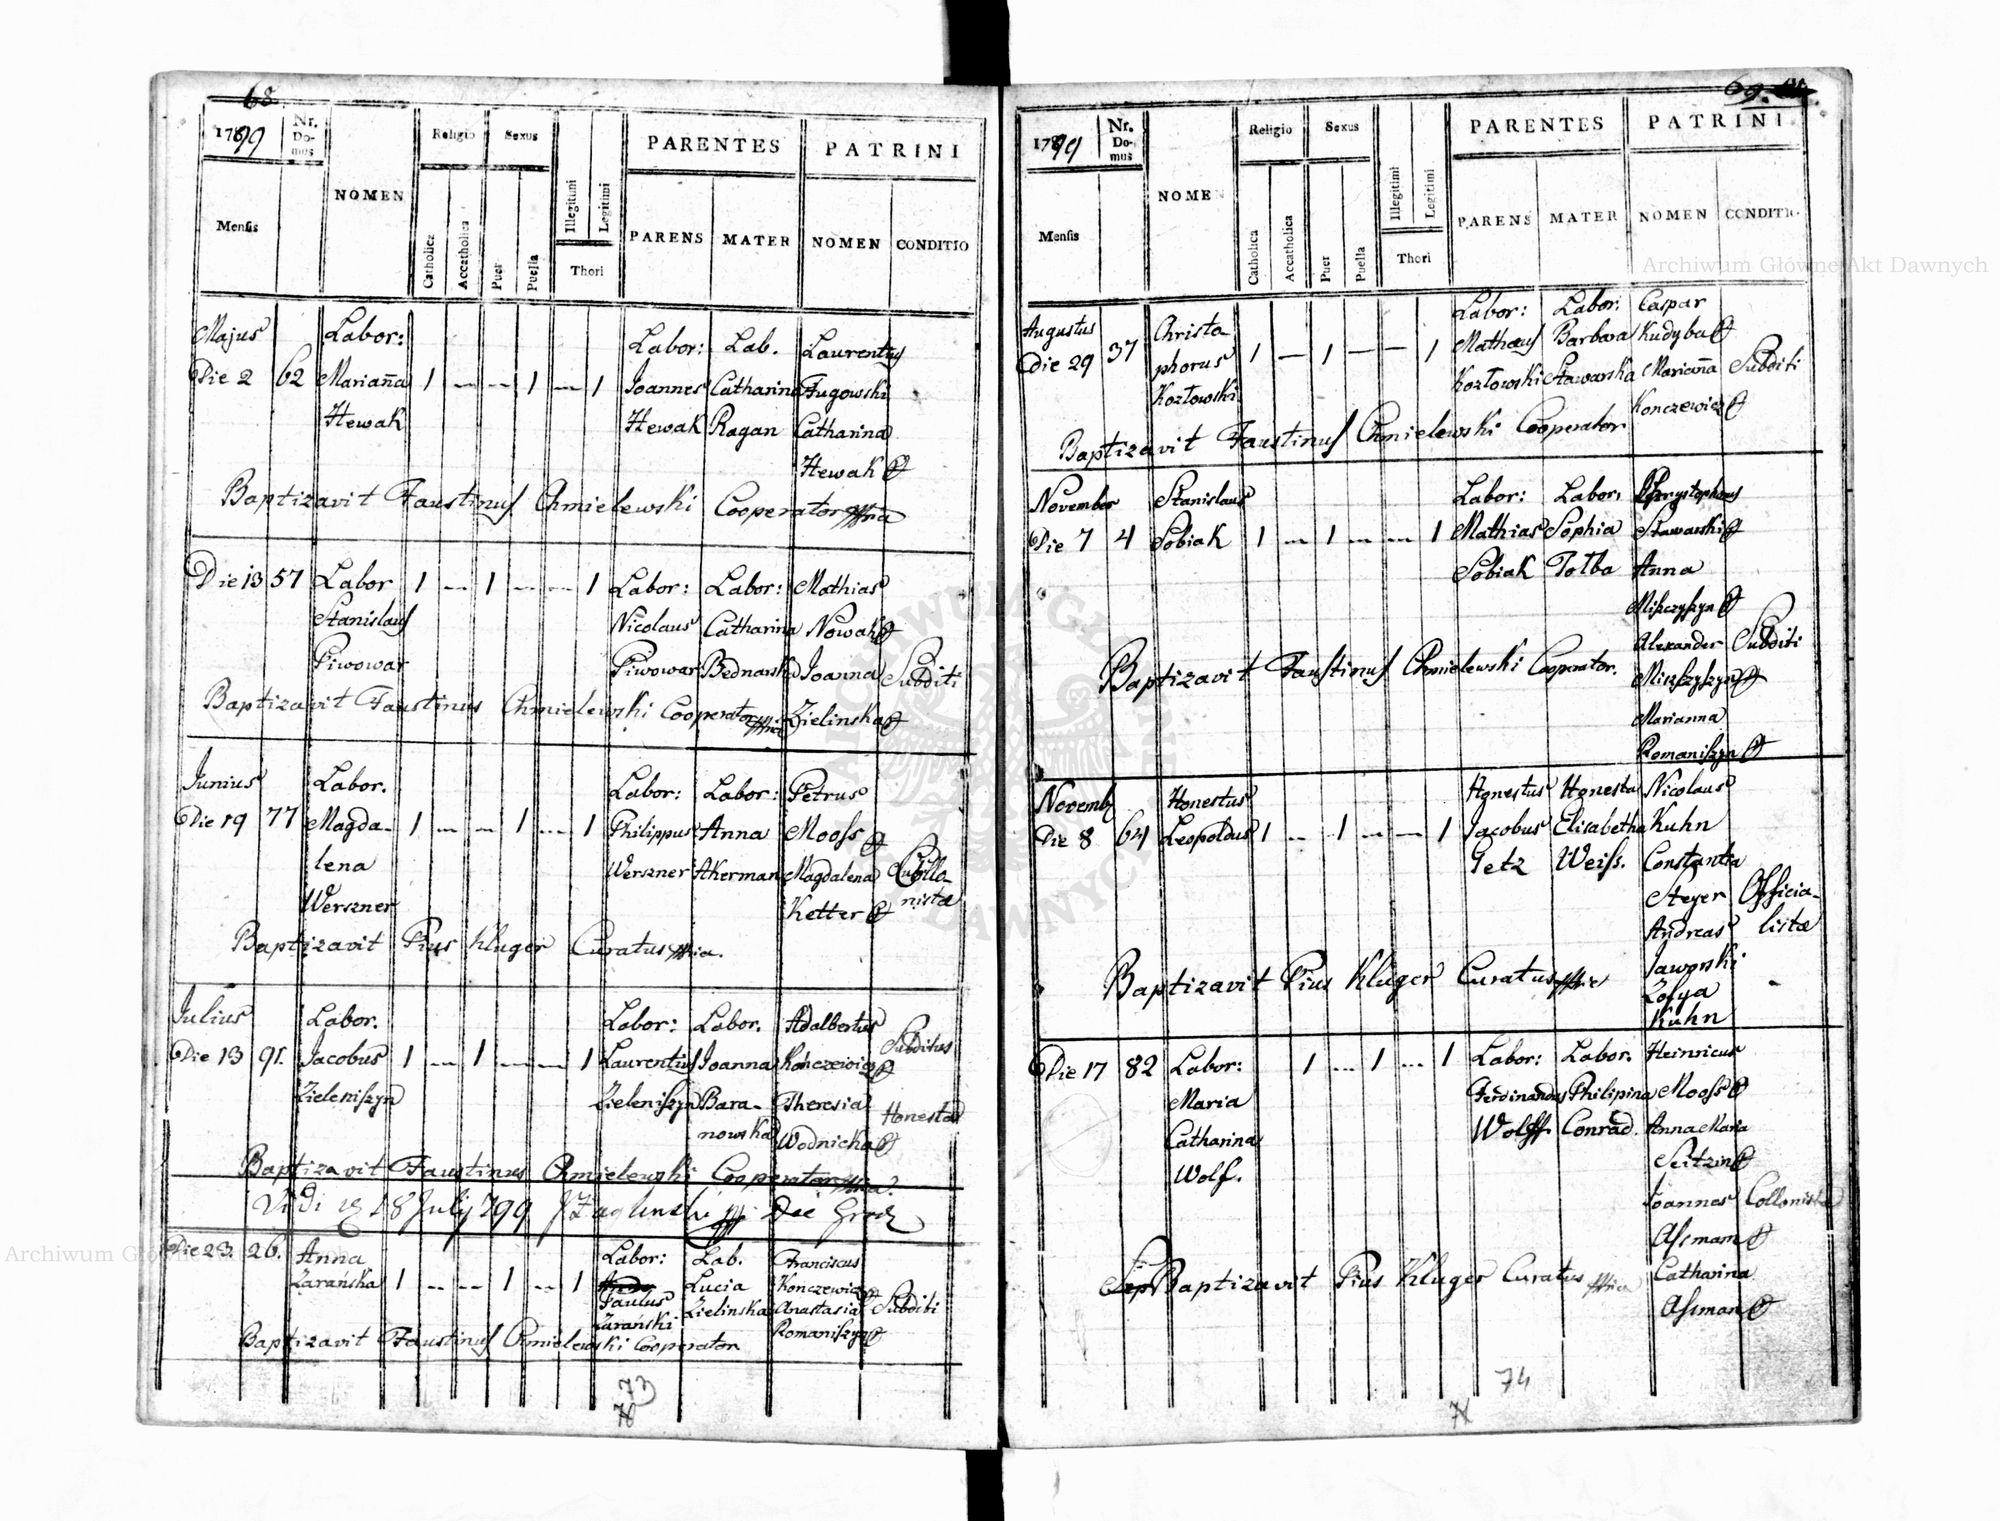 68
1799
Nr. Domus
NOMEN
Religio
Sexus
Illegitimi
Legitimi
Thori
PARENTES
PATRINI
Mensis
Catholica
Accatholica
Puer
Puella
PARENS
MATER
NOMEN
CONDITIO
Majus
Labor:
Labor: Lab. Laurentius
Die 2 62 Mariaña 1 — — 1 — 1 Joannes Catharina Fugowski
Hewak Hewak Ragan Catharina
Hewak
Baptizavit Faustinus Chmielewski Cooperator
Die 13 57 Labor 1 — 1 — — 1 Labor: Labor: Mathias
Stanislaus Nicolaus Catharina Nowak
Piwowar Piwowar Bednarska Joanna Subditi
Baptizavit Faustinus Chmielewski Cooperator Zielinska
Junius Labor. Labor: Labor: Petrus
Die 19 77 Magda- 1 — — 1 — 1 Philippus Anna Mooss
lena Werszner Akerman Magdalena
Werszner Ketter nistæ
Baptizavit Pius Kluger Curatus
Julius Labor. Labor: Labor. Adalbertus Subditus
Die 13 91. Jacobus 1 — 1 — — 1 Laurentius Joanna Konczewicz
Zieleniszyn Zieleniszyn Bara- Theresia Honesta
nowska Wodnicka
Baptizavit Faustinus Chmielewski Cooperator
Vidi 18 July 799
Die 23. 26. Anna Labor: Lab. Franciscus
Zaranska 1 — — 1 — 1 Paulus Lucia Konczewicz
Zaranski Zielinska Anastasia Subditi
Romaniszyn
Baptizavit Faustinus Chmielewski Cooperator
73
69.
1799
Nr. Domus
NOMEN
Religio
Sexus
Illegitimi
Legitimi
Thori
PARENTES
PATRINI
Mensis
Catholica
Accatholica
Puer
Puella
PARENS
MATER
NOMEN
CONDITIO
Augustus Christo- Labor: Labor: Caspar
Die 29 37 phorus 1 — 1 — — 1 Matheus Barbara Kudyba
Kozłowski Kozłowski Stawarska Mariaña Subditi
Konczewicz
Baptizavit Faustinus Chmielewski Cooperator
November Stanislaus Labor: Labor.
Die 7 4 Sobiak 1 — 1 — — 1 Mathias Sophia Stawarski
Sobiak Tolba Anna
Alexander Subditi
Baptizavit Faustinus Chmielewski Cooperator.
Marianna
Romaniszyn
Novemb Honestus Honestus Honesta Nicolaus
Die 8 64 Leopoldus 1 — 1 — — 1 Jacobus Elisabetha Kuhn
Getz Weiss. Constantia
Steyer Officia-
Andreas listæ
Jaworski
Baptizavit Pius Kluger Curatus
Zofya
Kuhn
Die 17 82 Labor: 1 — 1 — 1 Labor: Labor. Heinricus
Maria Ferdinandus Philipina Mooss
Catharina Wolff Conrad. Anna Maria
Wolf. Seitzin
Joannes Collonistæ
Assman
Baptizavit Pius Kluger Curatus Catharina
Assman
74
Archiwum Główne Akt Dawnych
Archiwum Główne Akt Dawnych
ARCHIWUM GŁÓWNE AKT DAWNYCH